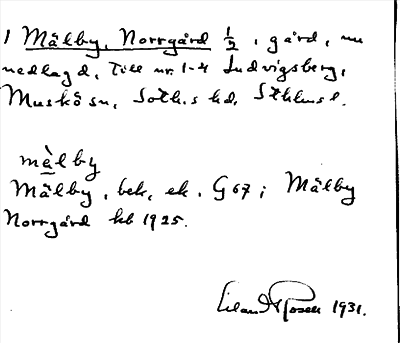 1 Mälby, Norrgård ½, gård, nu
nedlagd. Till nr. 1-4 Ludvigsberg,
Muskö sn, Soth.s hd, Sthlms l.
mälby
Mälby, bek, ek. G 67; Mälby
Norrgård kb 1925.
Rosell 1931.